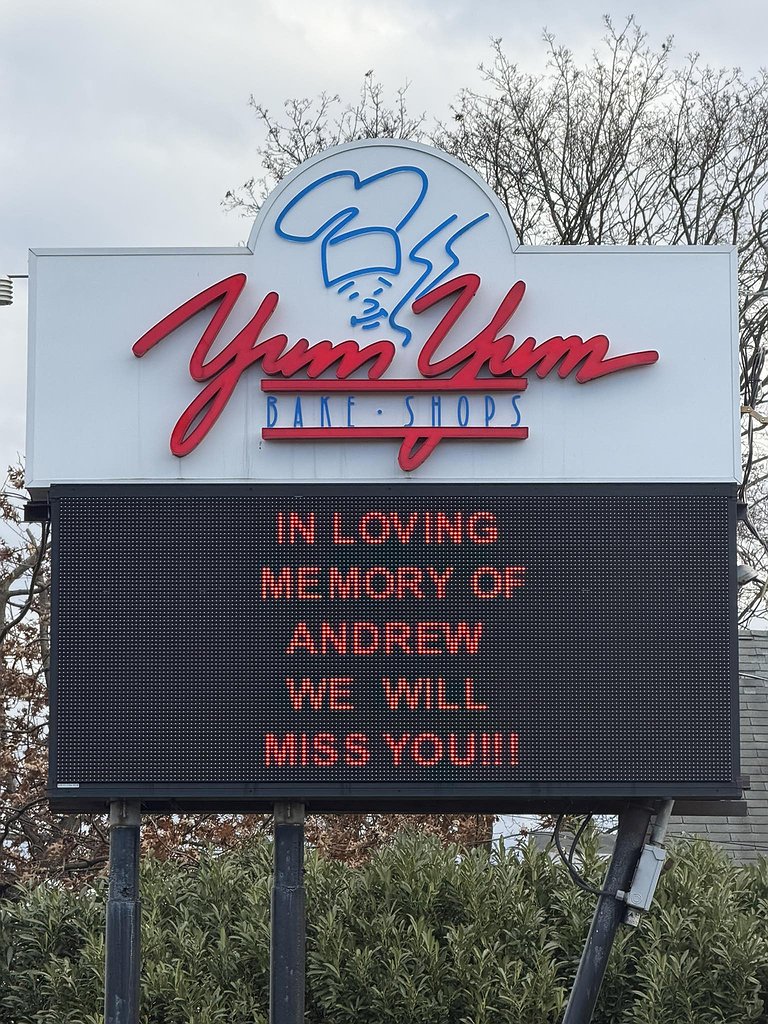 Yum Yum
BAKE · SHOPS
IN LOVING
MEMORY OF
ANDREW
WE WILL
MISS YOU!!!